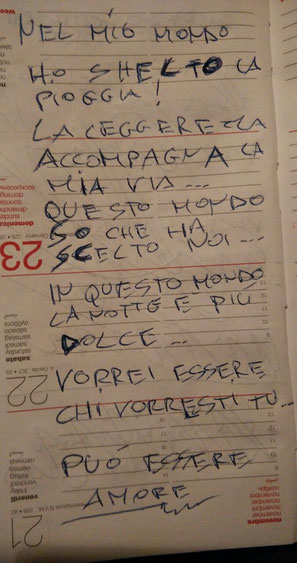 NEL MIO MONDO
HO SHELTO LA
PIOGGIA!
LA LEGGEREZZA
ACCOMPAGNA LA
MIA VIA...
QUESTO MONDO
SO CHE HA
SCELTO NOI...
IN QUESTO MONDO
LA NOTTE È PIÙ
DOLCE...
VORREI ESSERE
CHI VORRESTI TU...
PUÓ ESSERE
AMORE
domenica
23
sabato
22
venerdì
21
novembre